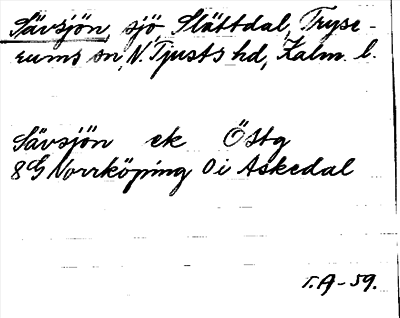 Sävsjön, sjö, Slättdal, Tryse-
rums sn, N. Tjusts hd, Kalm. l.
Sävsjön ek Östg
8G Norrköping 0i Askedal
T.A-59.